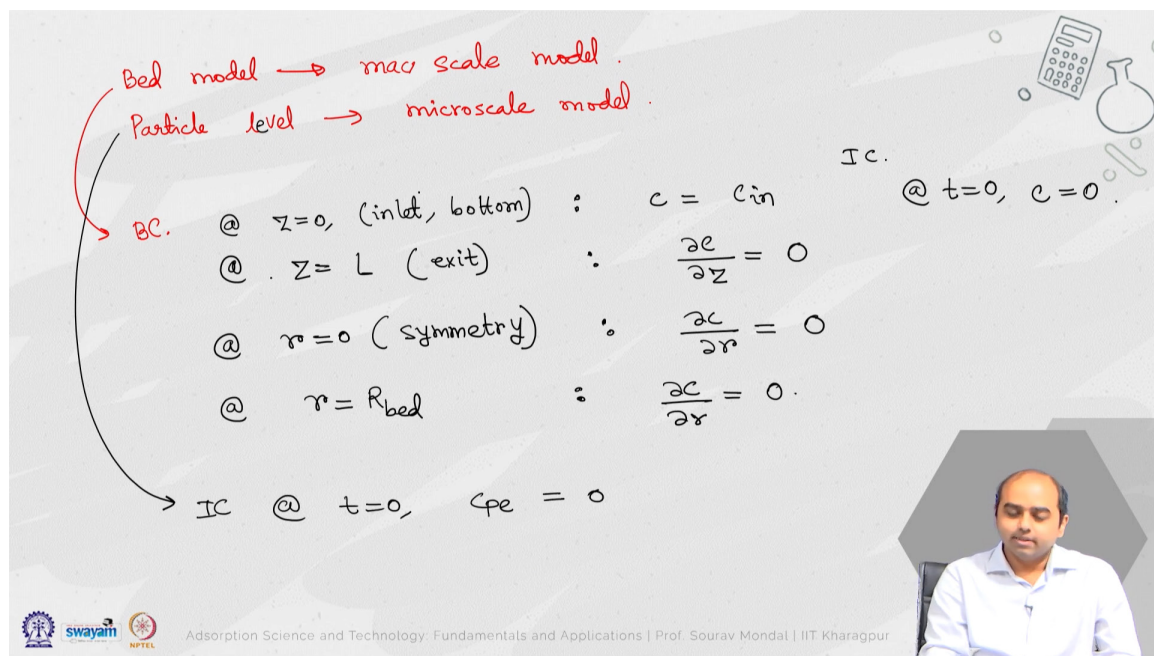 Bed model → mac scale model.
Particle level → microscale model.
IC.
@ t=0, c=0.
BC. @ z=0, (inlet, bottom) : c = Cin
@ . z= L (exit) : ∂c/∂z = 0
@ r=0 (symmetry) : ∂c/∂r = 0
@ r= Rbed : ∂c/∂r = 0.
IC @ t=0, Cpe = 0
swayam
NPTEL
Adsorption Science and Technology: Fundamentals and Applications | Prof. Sourav Mondal | IIT Kharagpur